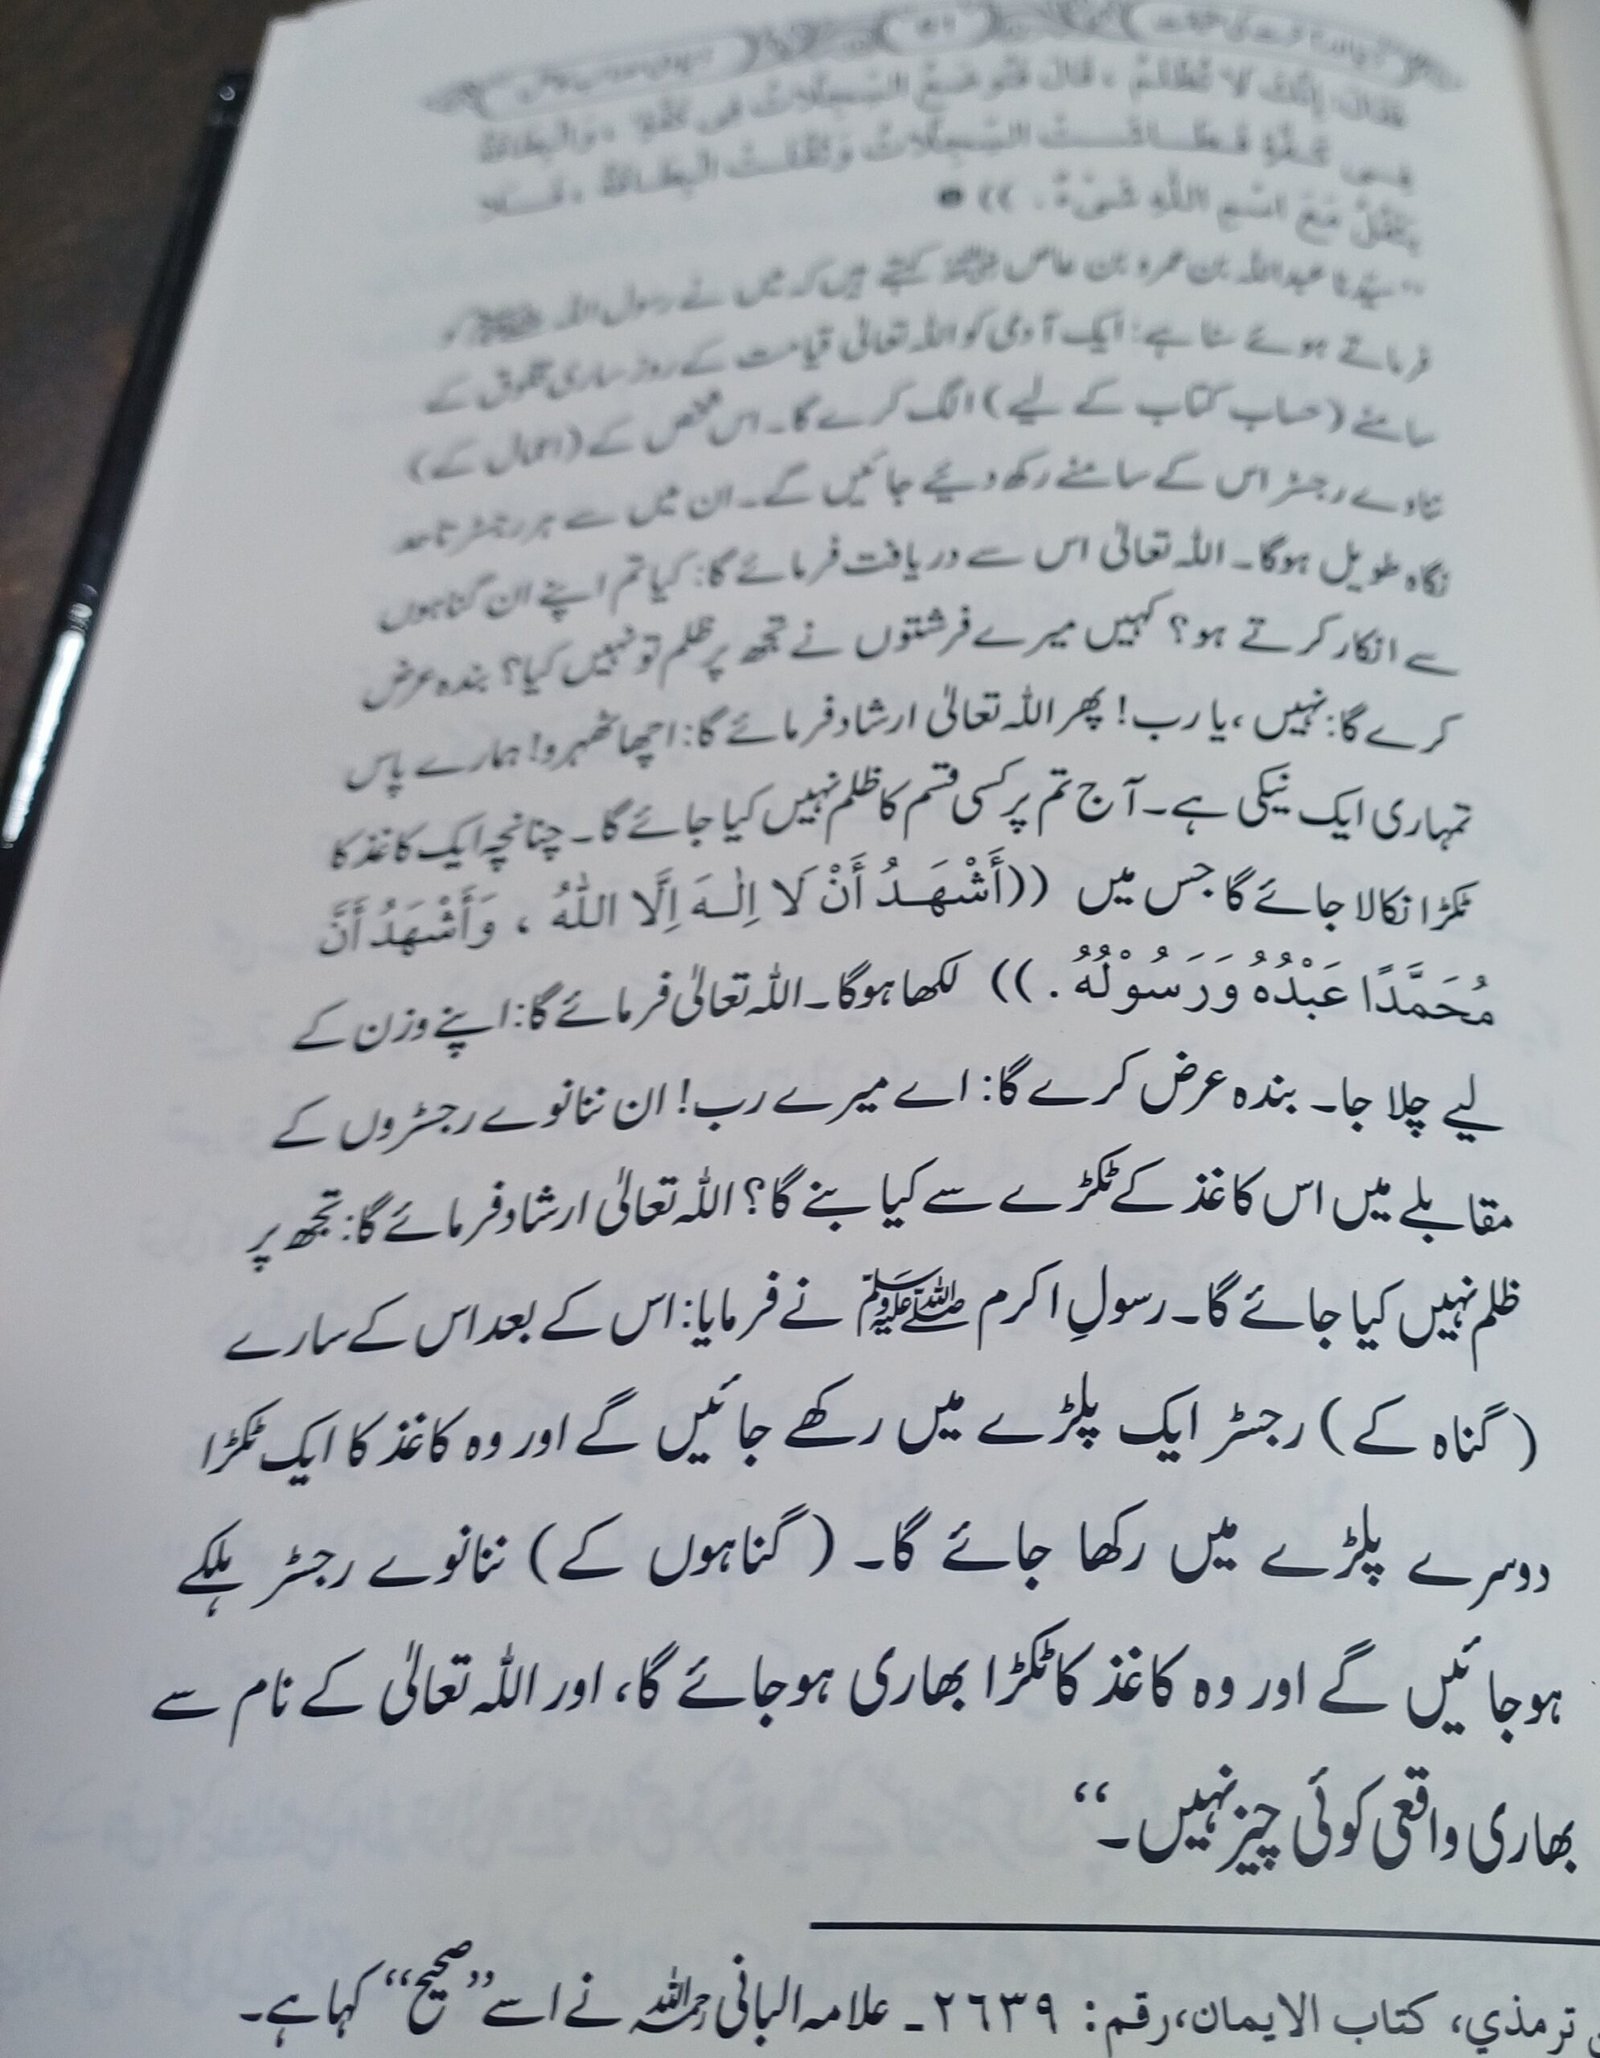 فَقَالَ إِنَّكَ لَا تُظْلَمُ ، قَالَ فَتُوضَعُ السِّجِلَّاتُ فِي كَفَّةٍ ، وَالْبِطَاقَةُ
فِي كَفَّةٍ فَطَاشَتِ السِّجِلَّاتُ وَثَقُلَتِ الْبِطَاقَةُ ، فَلَا
يَثْقُلُ مَعَ اسْمِ اللّٰهِ شَيْءٌ . ))
’’سیّدنا عبداللہ بن عمرو بن عاص کہتے ہیں کہ میں نے رسول اللہ ﷺ کو
فرماتے ہوئے سنا ہے: ایک آدمی کو اللہ تعالیٰ قیامت کے روز ساری مخلوق کے
سامنے (حساب کتاب کے لیے) الگ کرے گا۔ اس شخص کے (اعمال کے)
ننانوے رجسٹر اس کے سامنے رکھ دیئے جائیں گے۔ ان میں سے ہر رجسٹر تا حد
نگاہ طویل ہوگا۔ اللہ تعالیٰ اس سے دریافت فرمائے گا: کیا تم اپنے ان گناہوں
سے انکار کرتے ہو؟ کہیں میرے فرشتوں نے تجھ پر ظلم تو نہیں کیا؟ بندہ عرض
کرے گا: نہیں، یا رب! پھر اللہ تعالیٰ ارشاد فرمائے گا: اچھا ٹھہرو! ہمارے پاس
تمہاری ایک نیکی ہے۔ آج تم پر کسی قسم کا ظلم نہیں کیا جائے گا۔ چنانچہ ایک کاغذ کا
ٹکڑا نکالا جائے گا جس میں ((أَشْهَدُ أَنْ لَا اِلٰهَ اِلَّا اللّٰهُ ، وَأَشْهَدُ أَنَّ
مُحَمَّدًا عَبْدُهُ وَرَسُوْلُهُ . )) لکھا ہوگا۔ اللہ تعالیٰ فرمائے گا: اپنے وزن کے
لیے چلا جا۔ بندہ عرض کرے گا: اے میرے رب! ان ننانوے رجسٹروں کے
مقابلے میں اس کاغذ کے ٹکڑے سے کیا بنے گا؟ اللہ تعالیٰ ارشاد فرمائے گا: تجھ پر
ظلم نہیں کیا جائے گا۔ رسولِ اکرم ﷺ نے فرمایا: اس کے بعد اس کے سارے
(گناہ کے) رجسٹر ایک پلڑے میں رکھے جائیں گے اور وہ کاغذ کا ایک ٹکڑا
دوسرے پلڑے میں رکھا جائے گا۔ (گناہوں کے) ننانوے رجسٹر ہلکے
ہوجائیں گے اور وہ کاغذ کا ٹکڑا بھاری ہوجائے گا، اور اللہ تعالیٰ کے نام سے
بھاری واقعی کوئی چیز نہیں۔‘‘
ترمذي، کتاب الایمان، رقم: ٢٦٣٩۔ علامہ البانی رحمہ اللہ نے اسے ’’صحیح‘‘ کہا ہے۔